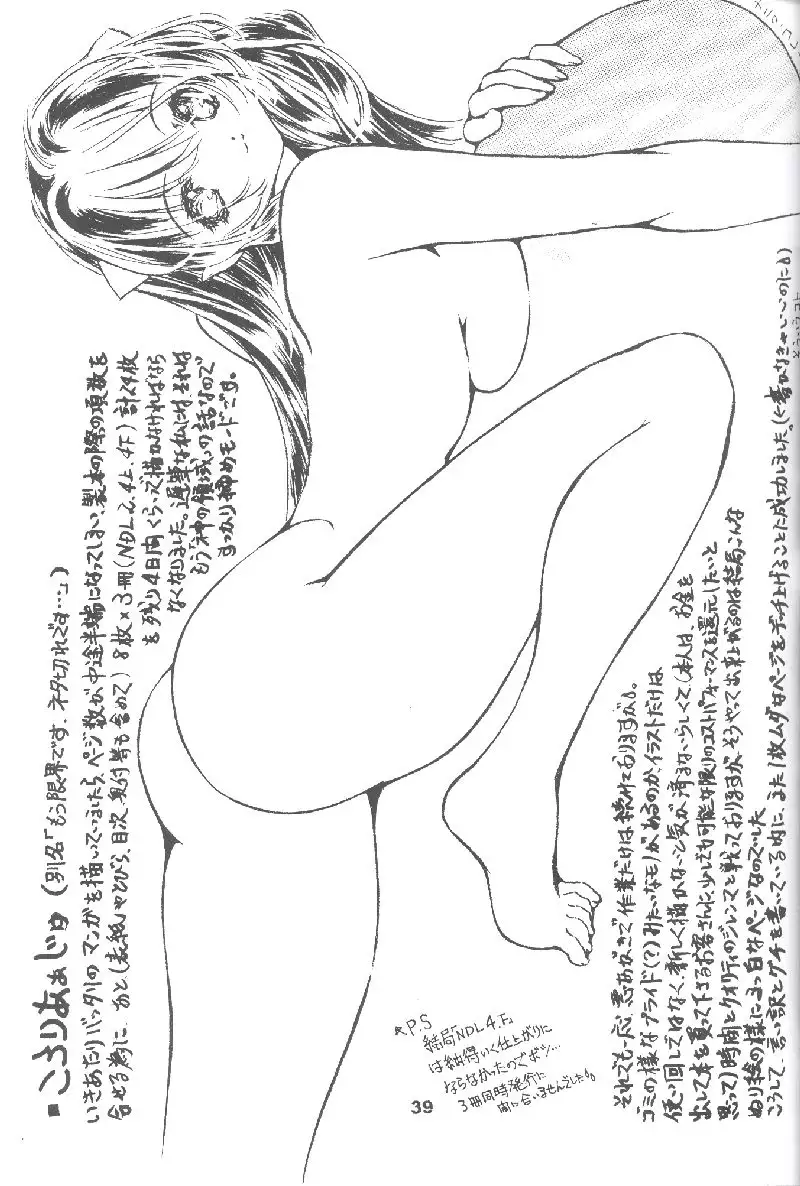 ■こらりあぁじゅ（別名「もう限界です、ネタ切れです…」）
いきあたりバッタリのマンガを描いていましたら、ページ数が中途半端になってしまい、製本の際の項数を
合せる為に、あと（表紙やとびら、目次、奥付等も含めて）８枚×３冊（NDL2.4上.4F）計24枚
を残り４日間くらいで描かなければなら
なくなりました。遅筆な私には、それは
もう「神の領域」の話なので
すっかり諦めモードです。
それでも一応、悪あがきで作業だけは続けておりますが。
ゴミの様なプライド（？）みたいなモノがあるのか、イラストだけは
使い回しではなく、新しく描かないと気が済まないらしくて、（本人は、お金を
出して本を買って下さるお客さんに少しでも可能な限りのコストパフォーマンスを還元したいと
思って）時間とクオリティのジレンマと戦っておりますが、そうやって出来上がるのは結局こんな
ぬり絵の様にまっ白なページなのでした
こうして、言い訳とグチを書いている内に、また１枚ムダなページをデッチ上げることに成功しました。（←書かなきゃいいのに）
★P.S
結局「NDL4.F」
は納得いく仕上がりに
ならなかったのでボツ…
３冊同時発行に
間に合いませんでした。
39